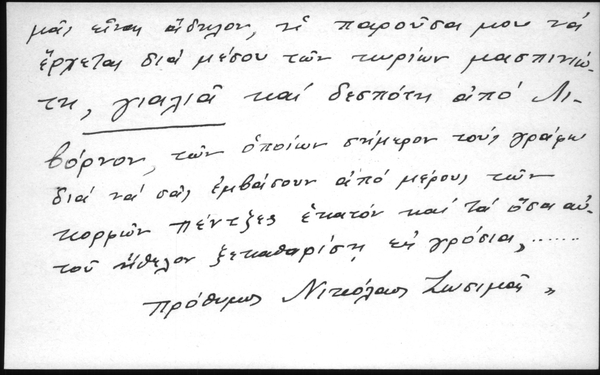 μᾶς εἶναι ἄδηλον, ἡ παροῦσα μου νά
ἔρχεται διά μέσου τῶν κυρίων μασπινιώ-
τη, γιαλιᾶ καί δεσπότη ἀπό Λι-
βόρνον, τῶν ὁποίων σήμερον τούς γράφω
διά νά σᾶς ἐμβάσουν ἀπό μέρους τῶν
κορμῶν πέντζες ἑκατόν καί τά ὅσα αὐ-
τοῦ ἤθελον ξεκαθαρίση εἰς γρόσια, .......
πρόθυμος Νικόλαος Ζωσιμᾶς „